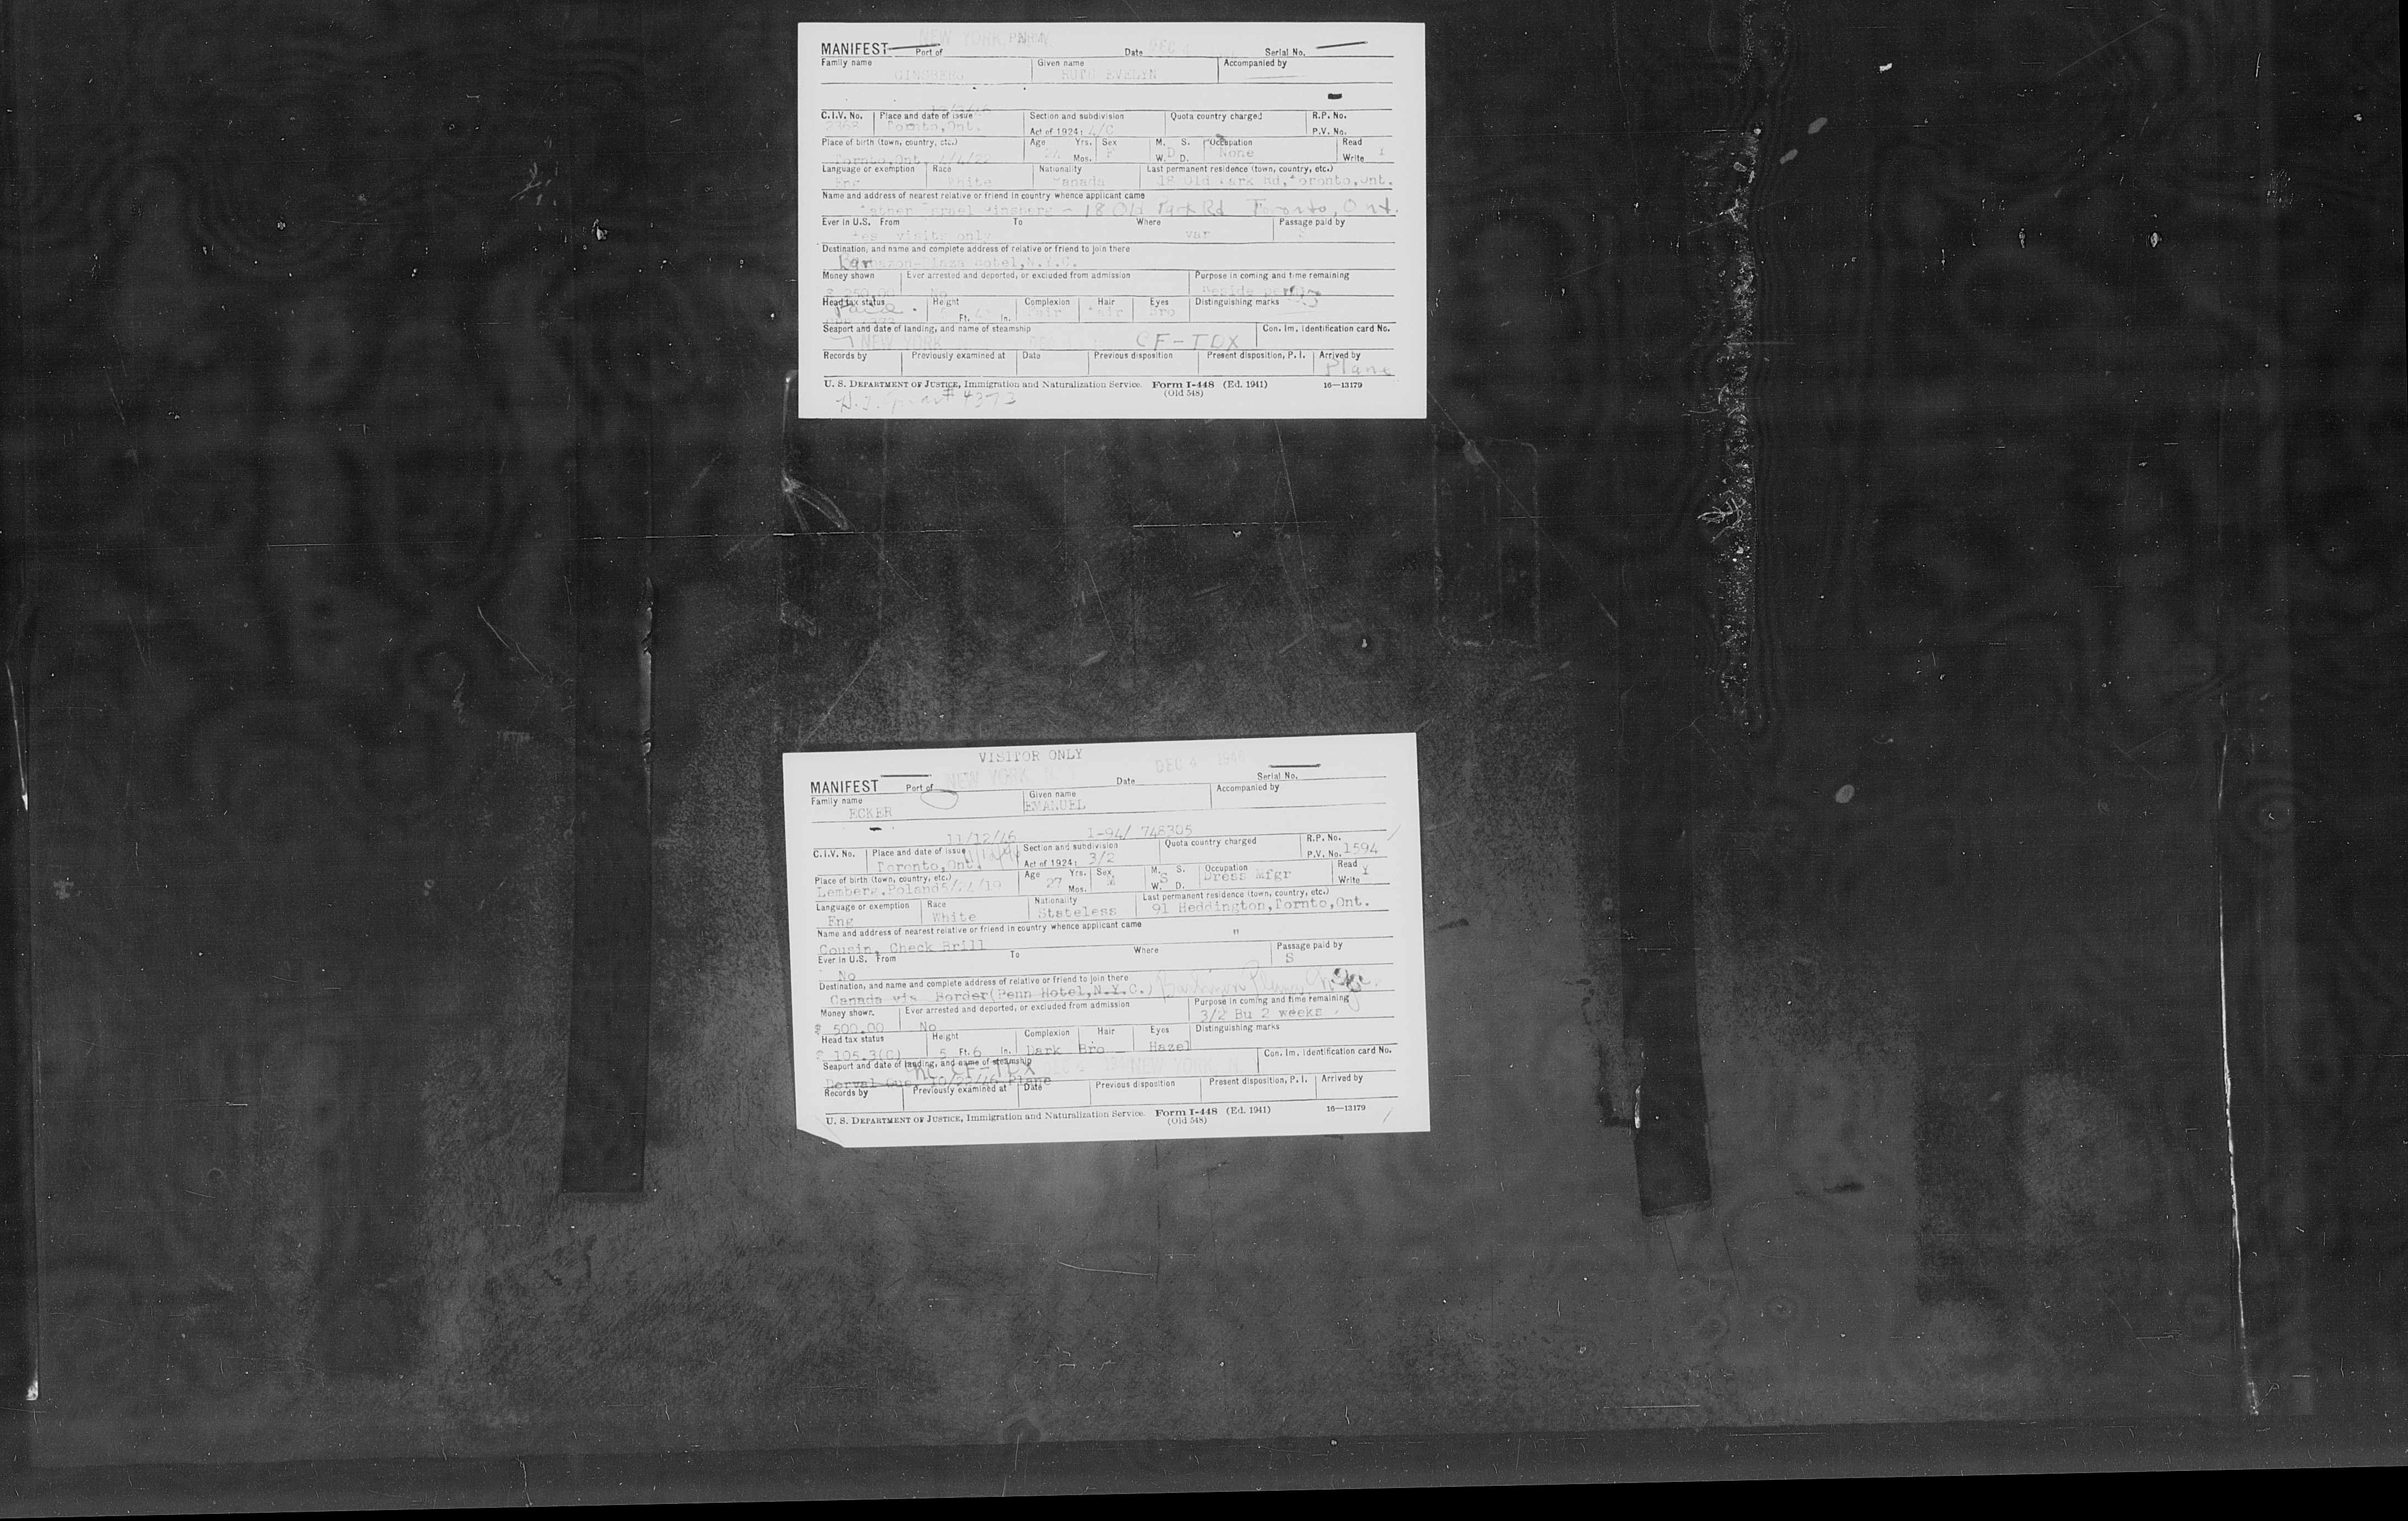 NEW YORK, N.Y. PERM
MANIFEST Port of Date DEC 4 Serial No.
Family name Given name Accompanied by
GINSBERG RUTH EVELYN
C.I.V. No. Place and date of issue Section and subdivision Quota country charged R.P. No.
Toronto,Ont. Act of 1924: 4/C P.V. No.
Place of birth (town, country, etc.) Age Yrs. Sex M. S. Occupation Read
Tornto,Ont. 24 Mos. F W. D. D None Write
Language or exemption Race Nationality Last permanent residence (town, country, etc.)
Eng White Canada 18 Old Park Rd,Toronto,Ont.
Name and address of nearest relative or friend in country whence applicant came
Father Israel Ginsberg - 18 Old Park Rd Toronto, Ont.
Ever in U.S. From To Where Passage paid by
Yes visits only var
Destination, and name and complete address of relative or friend to join there
Plaza Hotel,N.Y.C.
Money shown Ever arrested and deported, or excluded from admission Purpose in coming and time remaining
$ 250.00 No Reside perm
Head tax status Height Complexion Hair Eyes Distinguishing marks
Paid Ft. In. Fair Fair Bro
Seaport and date of landing, and name of steamship Con. Im. Identification card No.
NEW YORK DEC 4 CF-TDX
Records by Previously examined at Date Previous disposition Present disposition, P. I. Arrived by
Plane
U. S. DEPARTMENT OF JUSTICE, Immigration and Naturalization Service. Form I-448 (Ed. 1941) 16—13179
(Old 548)
# 4373
VISITOR ONLY
NEW YORK, N.Y. DEC 4 1946
MANIFEST Port of Date Serial No.
Family name Given name Accompanied by
ECKER EMANUEL
11/12/46 I-94/ 746305
C.I.V. No. Place and date of issue Section and subdivision Quota country charged R.P. No.
Toronto,Ont. Act of 1924: 3/2 P.V. No. 1594
Place of birth (town, country, etc.) Age Yrs. Sex M. S. Occupation Read
Lemberg,Poland 27 Mos. M W. D. S Dress Mfgr Write Y
Language or exemption Race Nationality Last permanent residence (town, country, etc.)
Eng White Stateless 91 Heddington,Tornto,Ont.
Name and address of nearest relative or friend in country whence applicant came
Cousin, Check Brill "
Ever in U.S. From To Where Passage paid by
No S
Destination, and name and complete address of relative or friend to join there
Canada via Border(Penn Hotel,N.Y.C.) Plaza
Money shown. Ever arrested and deported, or excluded from admission Purpose in coming and time remaining
$ 500.00 No 3/2 Bu 2 weeks
Head tax status Height Complexion Hair Eyes Distinguishing marks
105.3(C) 5 Ft. 6 In. Dark Bro Hazel
Seaport and date of landing, and name of steamship Con. Im. Identification card No.
CF-TDX DEC 4 NEW YORK, N.Y.
Dorval Que. Plane
Records by Previously examined at Date Previous disposition Present disposition, P. I. Arrived by
U. S. DEPARTMENT OF JUSTICE, Immigration and Naturalization Service. Form I-448 (Ed. 1941) 16—13179
(Old 548)